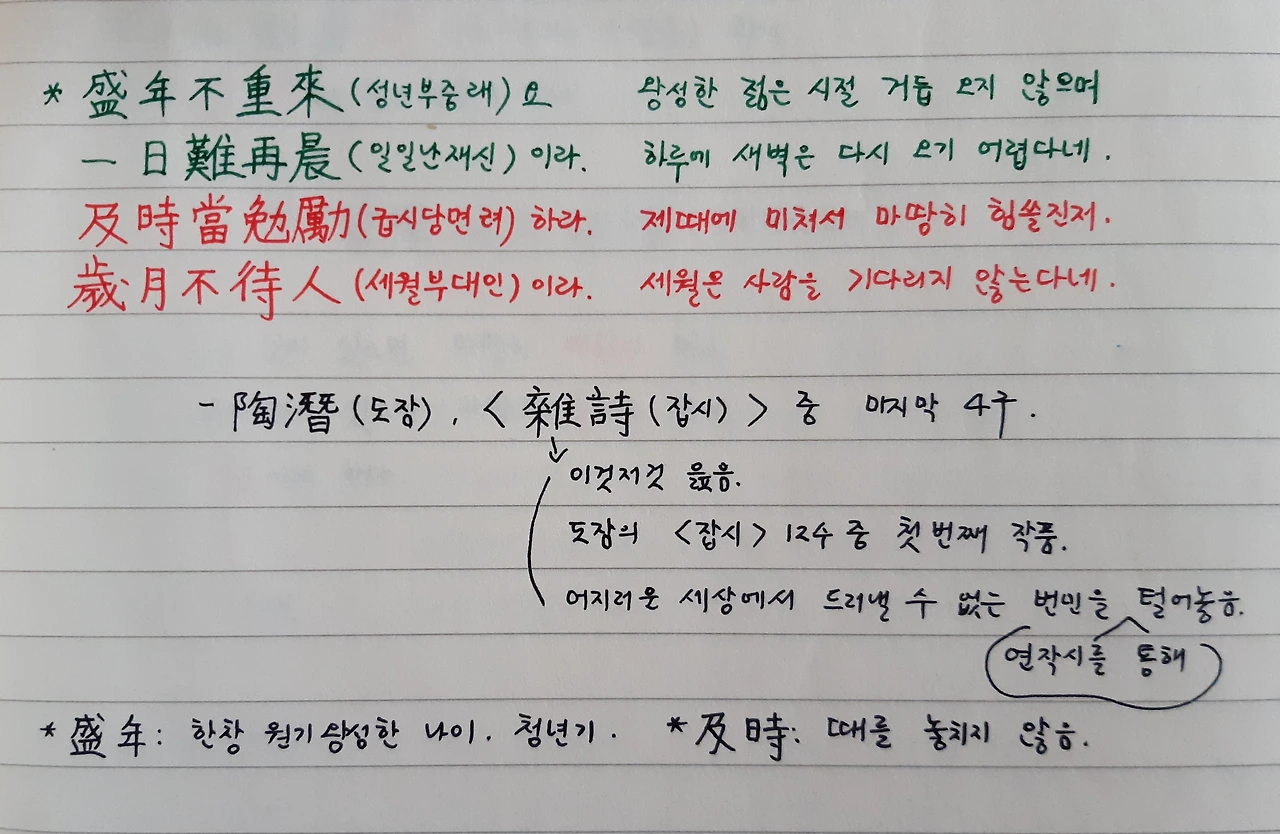 * 盛年不重來(성년부중래)요 왕성한 젊은 시절 거듭 오지 않으며
一日難再晨(일일난재신)이라. 하루에 새벽은 다시 오기 어렵다네.
及時當勉勵(급시당면려)하라. 제때에 미쳐서 마땅히 힘쓸진저.
歲月不待人(세월부대인)이라. 세월은 사람을 기다리지 않는다네.
- 陶潛(도잠), <雜詩(잡시)> 중 마지막 4구.
↓
이것저것 읊음.
도잠의 <잡시> 12수 중 첫 번째 작품.
어지러운 세상에서 드러낼 수 없는 번민을 털어놓음.
연작시를 통해
* 盛年: 한창 원기 왕성한 나이. 청년기. * 及時: 때를 놓치지 않음.